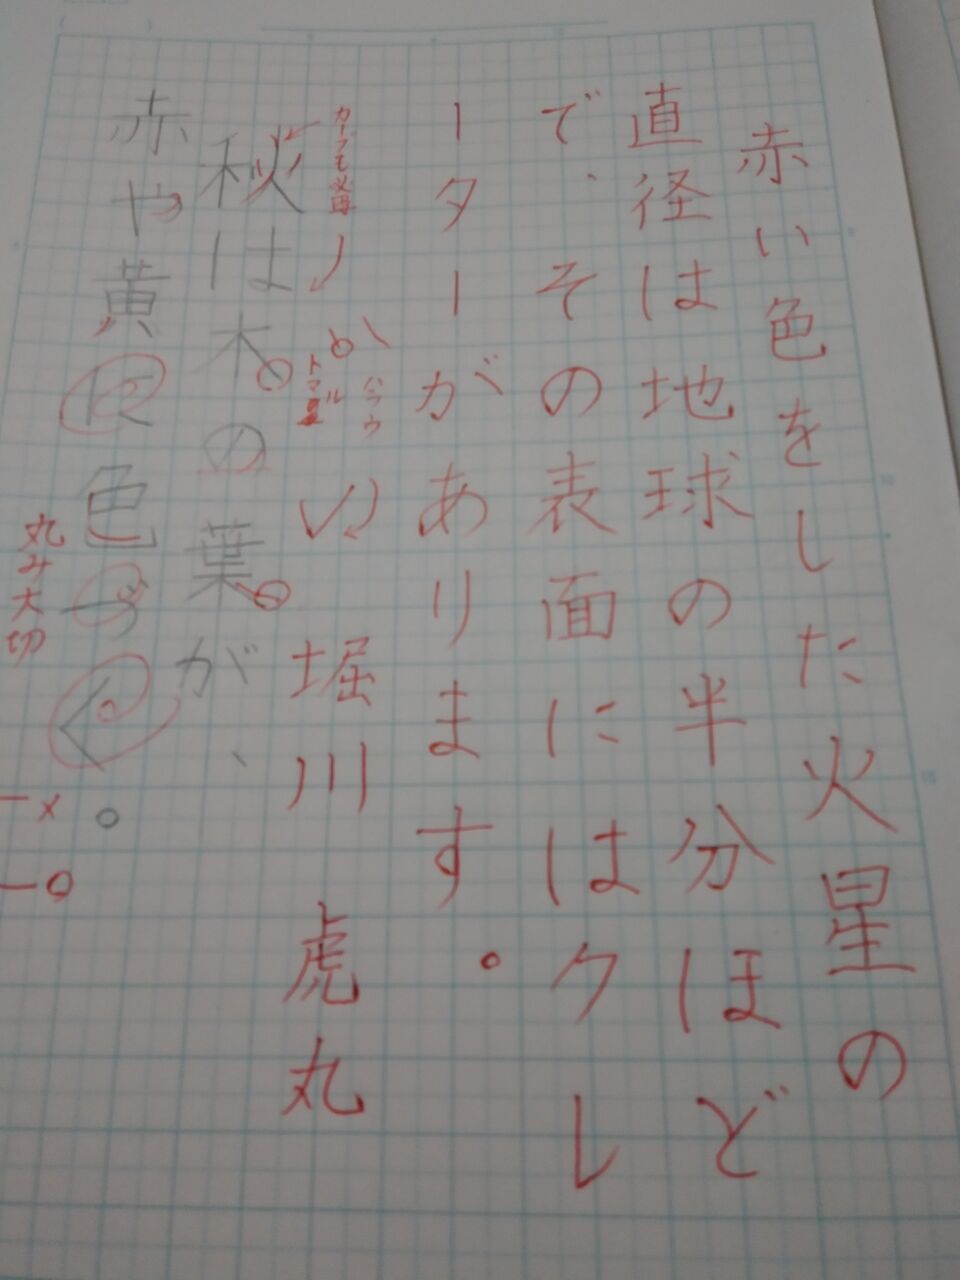 赤い色をした火星の
直径は地球の半分ほど
で、その表面にはクレ
ーターがあります。
堀川 虎丸
カーブも必要
ハラウ
トマル
秋は木の葉が、
赤や黄に色づく。
丸み大切